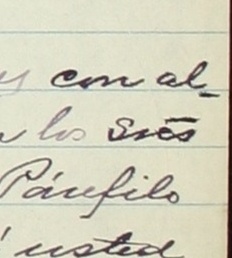 y con al-
los Srēs
Pánfilo
usted